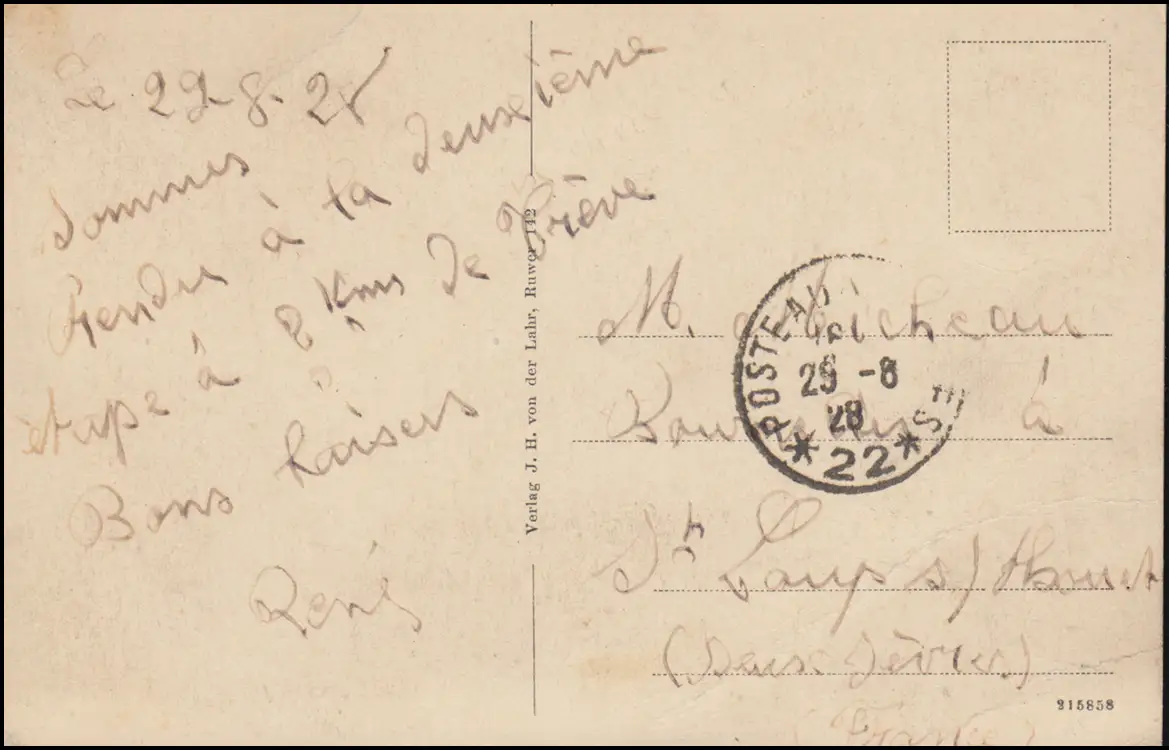 Le 29-8-28
Sommes
rendus à la deuxième
étape à 8 Kms de Trève
Bons baisers
René
Verlag J. H. von der Lahr, Ruwer 142
POSTE AUX
29 -8
28
* 22 *
M. Micheau
à
St Loup s/ Thouet
(Deux Sèvres)
(France)
215858